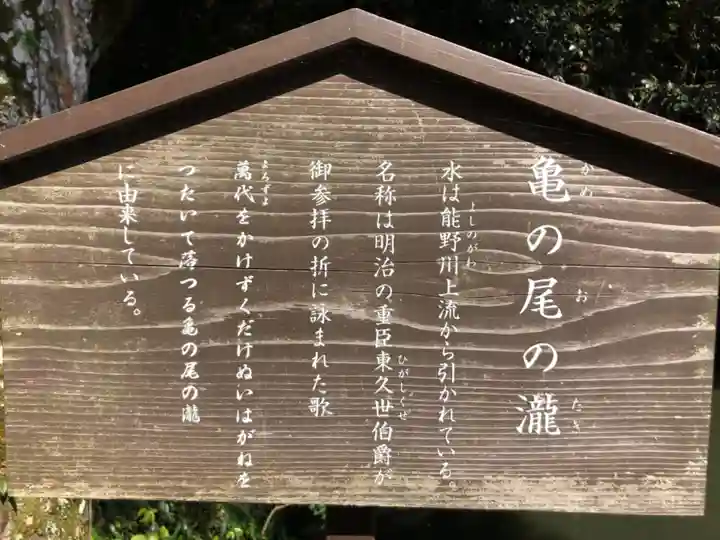 亀の尾の瀧
かめ お たき
水は能野川上流から引かれている。
よしのがわ
名称は明治の重臣東久世伯爵が
ひがしくぜ
御参拝の折に詠まれた歌
萬代をかけずくだけぬいはがねを
よろずよ
つたいて落つる亀の尾の瀧
に由来している。